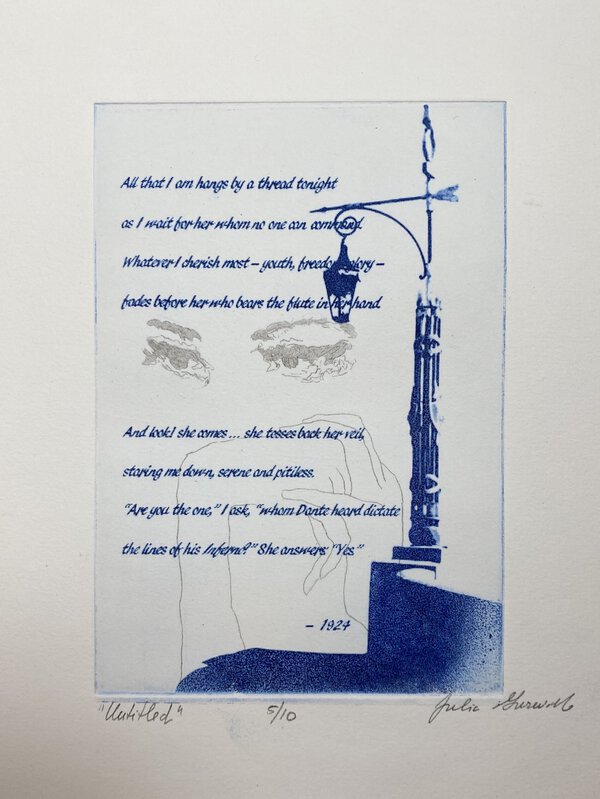 All that I am hangs by a thread tonight
as I wait for her whom no one can command.
Whatever I cherish most – youth, freedom, glory –
fades before her who bears the flute in her hand
And look! she comes ... she tosses back her veil,
staring me down, serene and pitiless.
"Are you the one," I ask, "whom Dante heard dictate
the lines of his Inferno?" She answers "Yes"
– 1924
"Untitled" 5/10 Julia